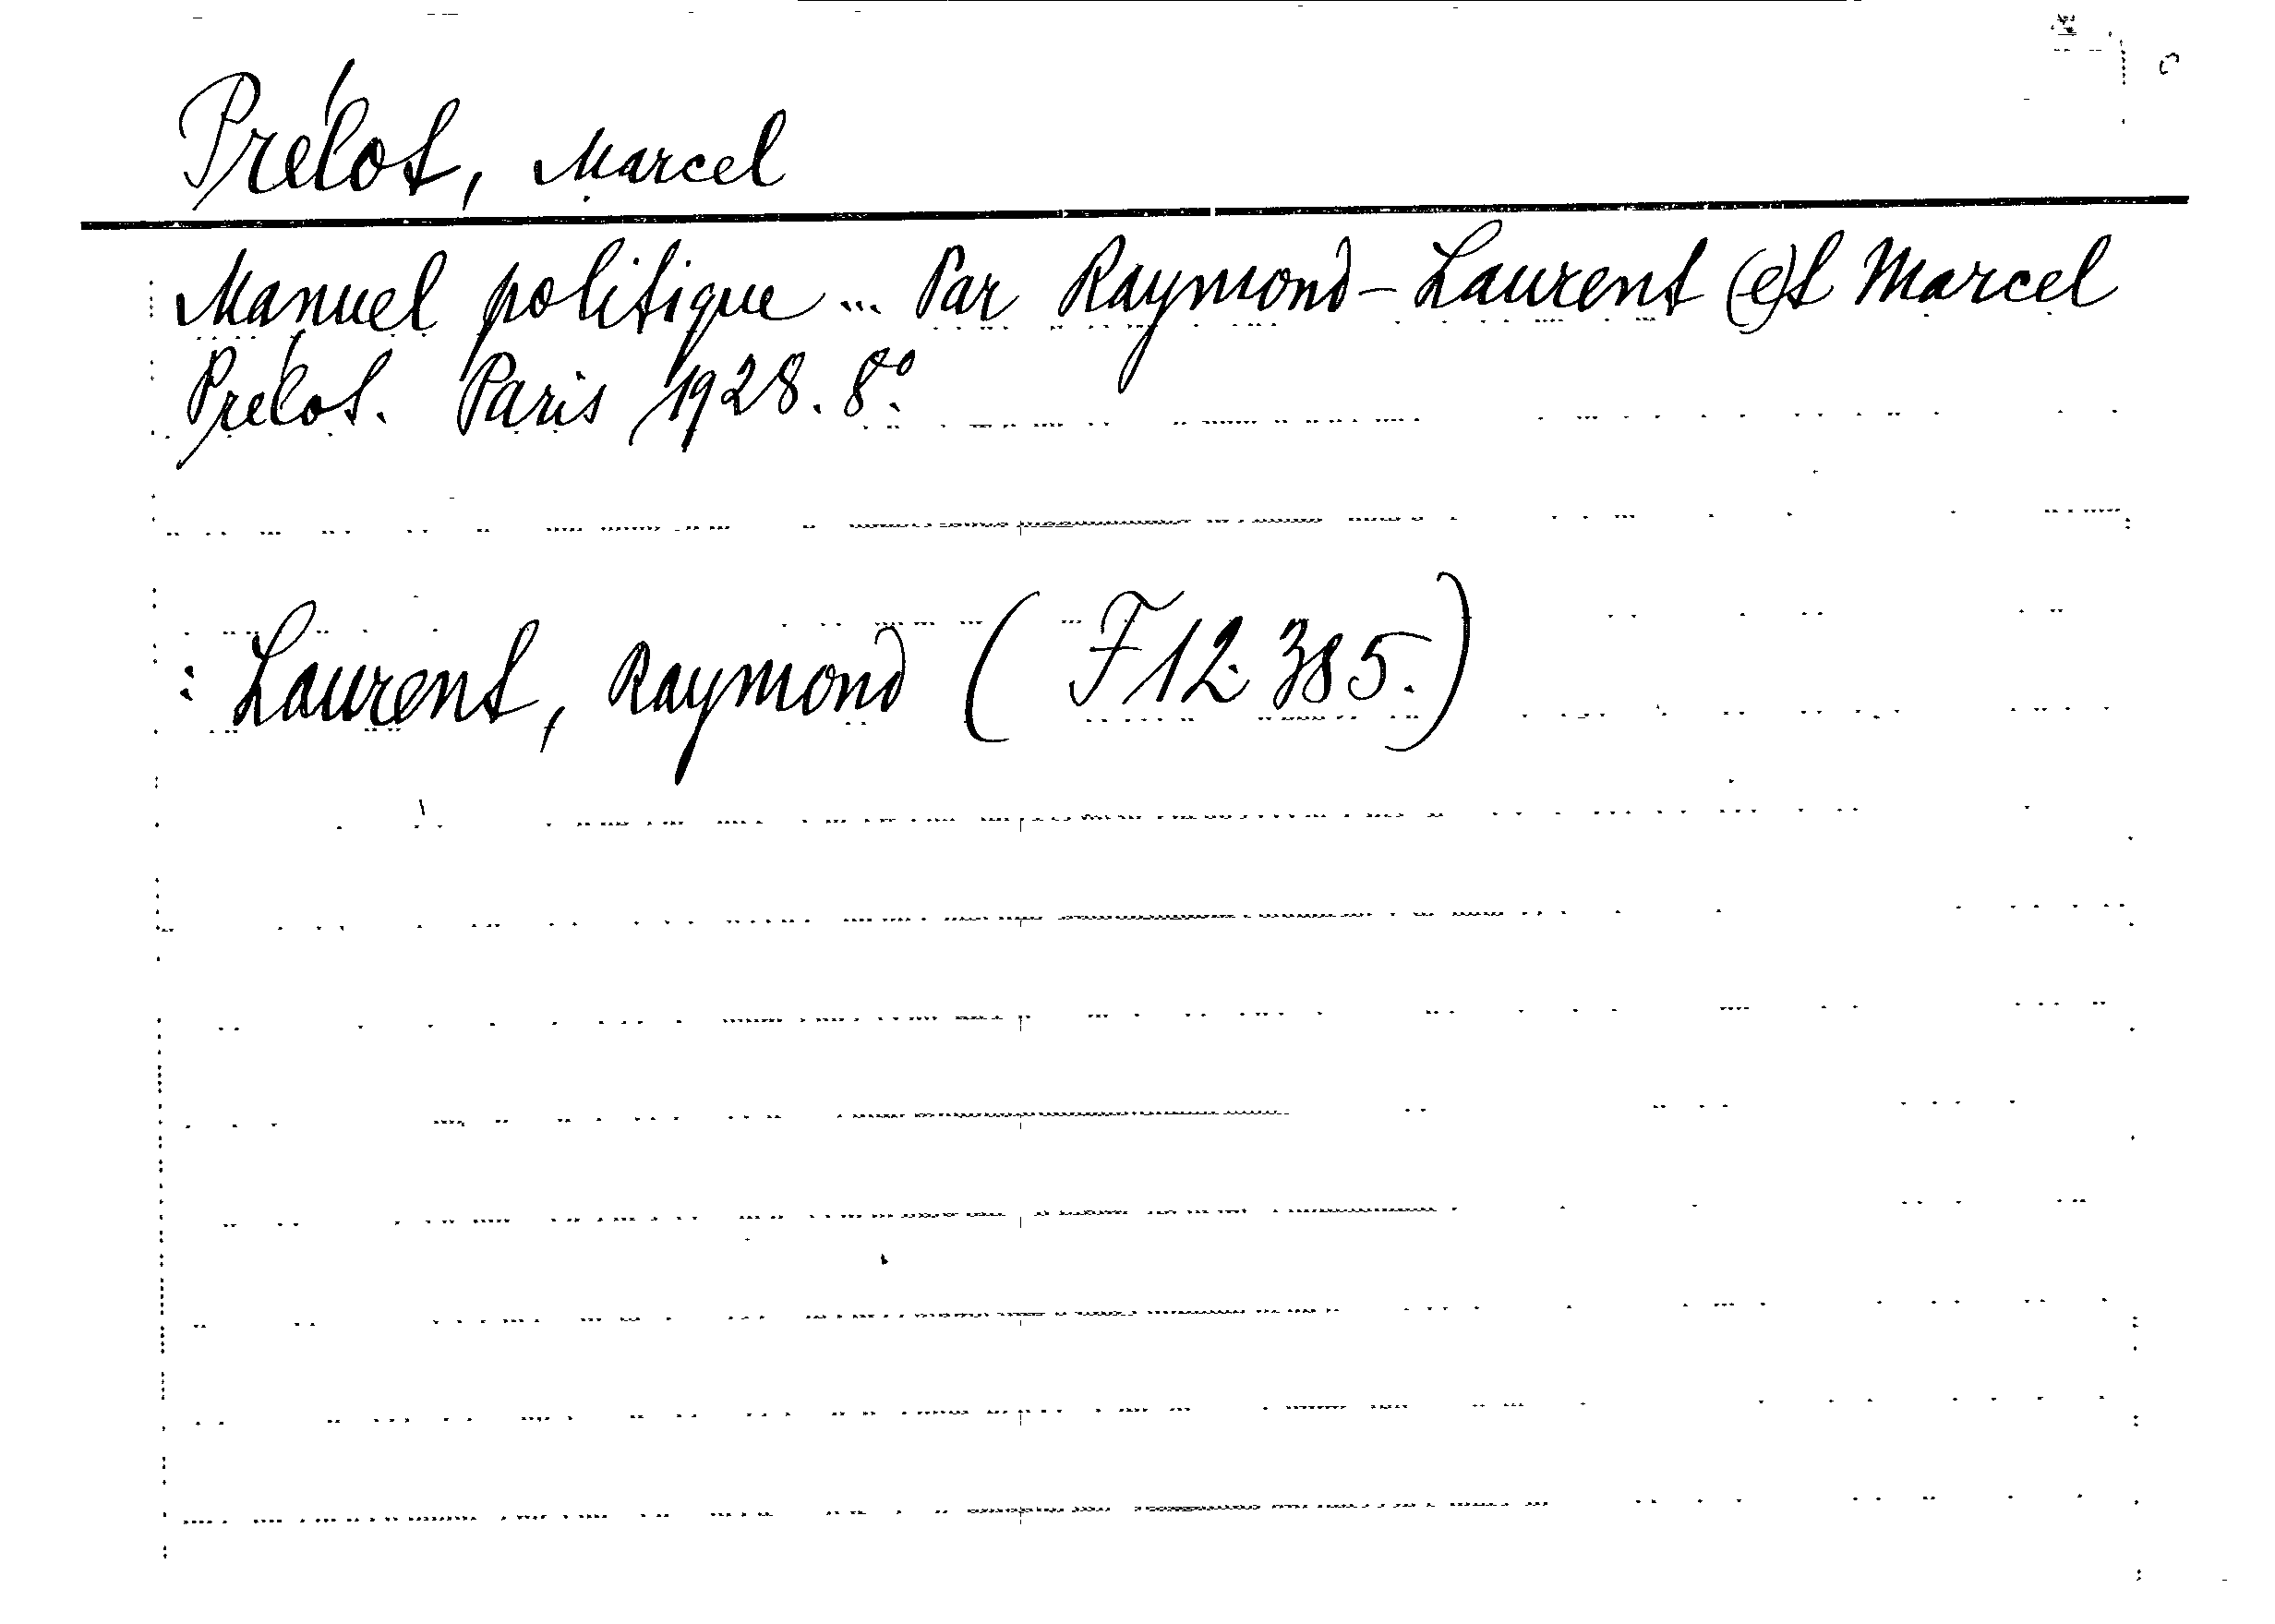 Prélot, Marcel
Manuel politique ... Par Raymond-Laurent (e)t Marcel
Prélot. Paris 1928. 8°.
: Laurent, Raymond ( F 12. 385.)